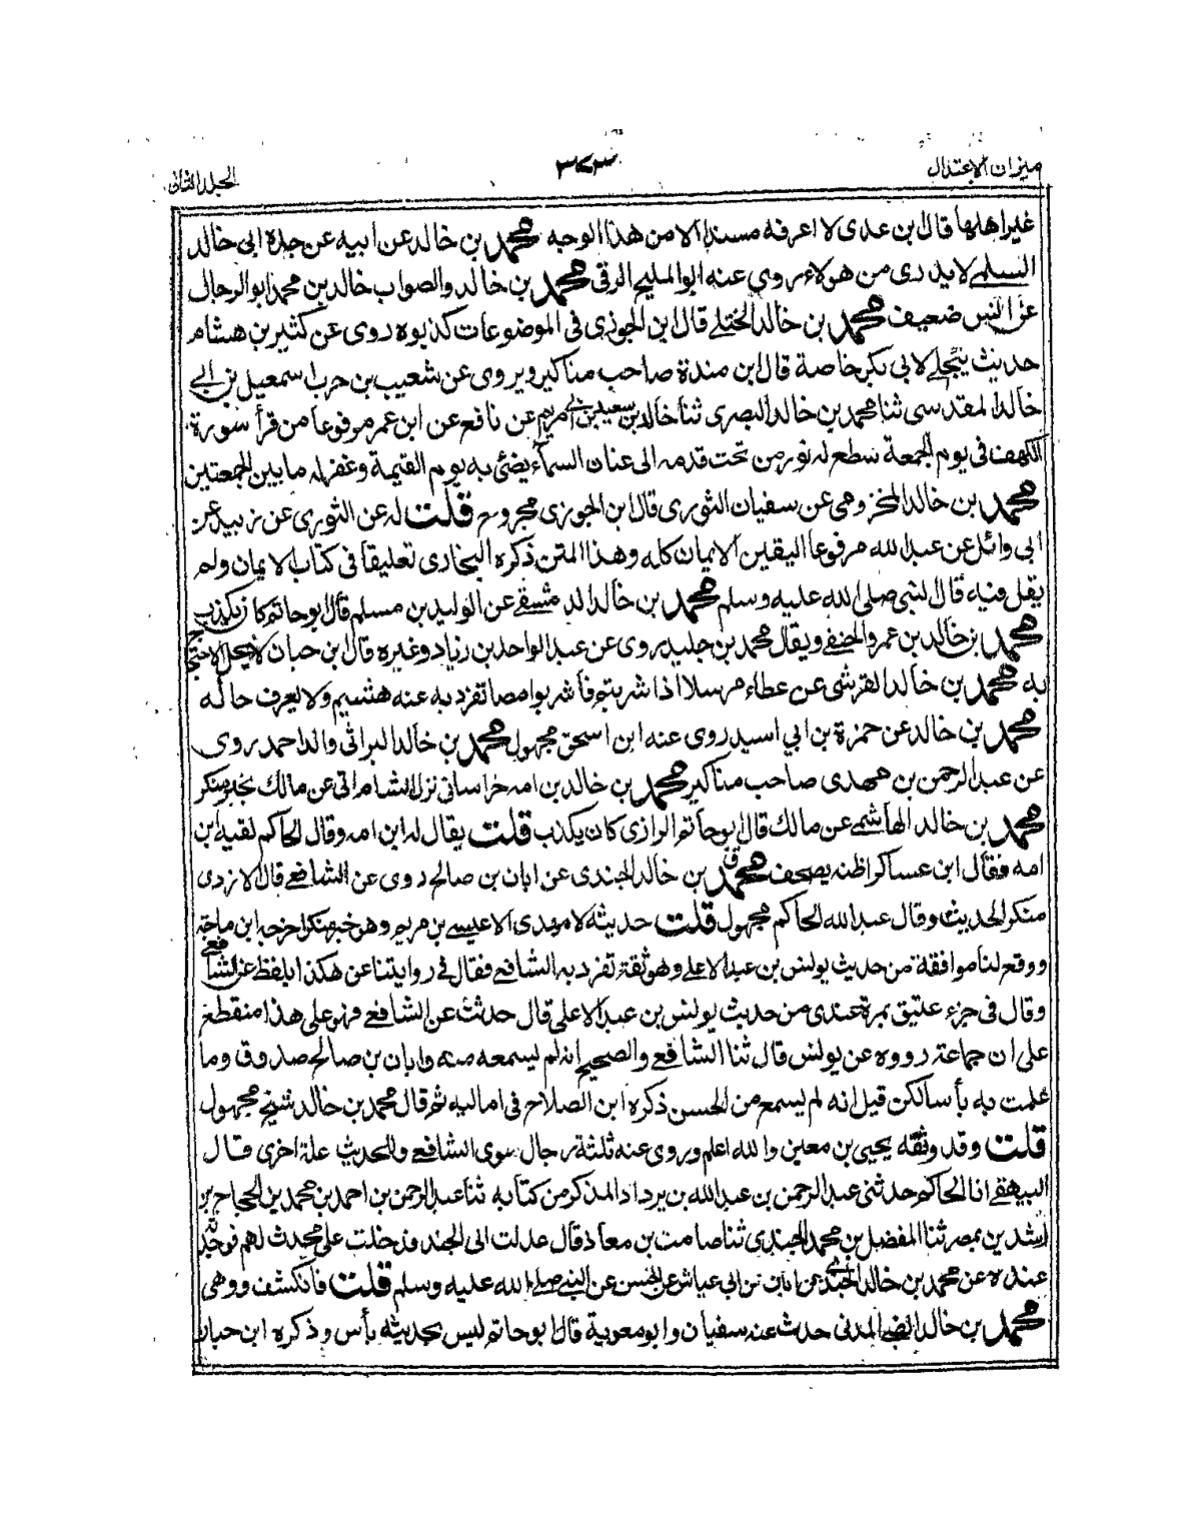 ميزان الاعتدال
٣٧٣
الجلد الثانى
غيراهلها قال ابن عدى لا اعرفه مسندا الا من هذا الوجه محمد بن خالد عن ابيه عن جده ابى خالد
السلمى لا يدرى من هولاء روى عنه ابوالمليح الرقى محمد بن خالد والصواب خالد بن محمد ابوالرحال
عن انس ضعيف محمد بن خالد الختلى قال ابن الجوزى فى الموضوعات كذبوه روى عن كثير بن هشام
حديث يتجلى لابى بكر خاصة قال ابن مندة صاحب مناكير ويروى عن شعيب بن حرب اسمعيل بن ابى
خالد المقدسى ثنا محمد بن خالد البصرى ثنا خالد بن سعيد بن ابى مريم عن نافع عن ابن عمر مرفوعا من قرأ سورة
الكهف فى يوم الجمعة سطع له نور من تحت قدمه الى عنان السماء يضئ به يوم القيمة وغفر له ما بين الجمعتين
محمد بن خالد المخزومى عن سفيان الثورى قال ابن الجوزى مجروح قلت له عن الثورى عن زبيد عن
ابى وائل عن عبد الله مرفوعا اليقين الايمان كله وهذا المتن ذكره البخارى تعليقا فى كتاب الايمان ولم
يقل فيه قال النبى صلى الله عليه وسلم محمد بن خالد الدمشقى عن الوليد بن مسلم قال ابوحاتم كان يكذب
محمد بن خالد بن عمرو الحنفى ويقال محمد بن جليد روى عن عبد الواحد بن زياد وغيره قال ابن حبان لا يحل الاحتجاج
به محمد بن خالد القرشى عن عطاء مرسلا اذا شربتم فأشربوا مصا تفرد به عنه هشيم ولا يعرف حاله
محمد بن خالد عن حمزة بن ابي اسيد روى عنه ابن اسحق مجهول محمد بن خالد البراثى والد احمد روى
عن عبد الرحمن بن مهدى صاحب مناكير محمد بن خالد بن امه خراسانى نزل الشام اتى عن مالك بخبر منكر
محمد بن خالد الهاشمى عن مالك قال ابوحاتم الرازى كان يكذب قلت يقال له ابن امه وقال الحاكم لقبه ابن
امه فقال ابن عساكر اظنه يصحف محمد ق بن خالد الجندى عن ابان بن صالح روى عن الشافعى قال الازدى
منكر الحديث وقال عبد الله الحاكم مجهول قلت حديثه لا مهدى الا عيسى بن مريم وهو خبر منكر اخرجه ابن ماجة
ووقع لنا موافقة من حديث يونس بن عبد الاعلى وهو ثقة تفرد به الشافعى فقال فى روايتنا عن هكذا بلفظ عن الشافعى
وقال فى جزء عتيق بمرة عندى من حديث يونس بن عبد الاعلى قال حدثت عن الشافعى فهو على هذا منقطع
على ان جماعة رووه عن يونس قال ثنا الشافعى والصحيح انه لم يسمعه منه وابان بن صالح صدوق وما
علمت به بأسا لكن قيل انه لم يسمع من الحسن ذكره ابن الصلاح فى اماليه ثم قال محمد بن خالد شيخ مجهول
قلت وقد وثقه يحيى بن معين والله اعلم وروى عنه ثلثة رجال سوى الشافعى وللحديث علة اخرى قال
البيهقى انا الحاكم حدثنى عبد الرحمن بن عبد الله بن يرداد المذكر من كتابه ثنا عبد الرحمن بن احمد بن محمد بن الحجاج بن
رشدين بمصر ثنا المفضل بن محمد الجندى ثنا صامت بن معاذ قال عدلت الى الجند فدخلت على محدث لهم فوجدت
عنده عن محمد بن خالد الجندى عن ابان بن ابى عياش عن الحسن عن النبى صلى الله عليه وسلم قلت فأنكشف ووهى
محمد بن خالد الضبى المدنى حدث عنه سفيان وابو معوية قال ابوحاتم ليس بحديثه بأس وذكره ابن حبان